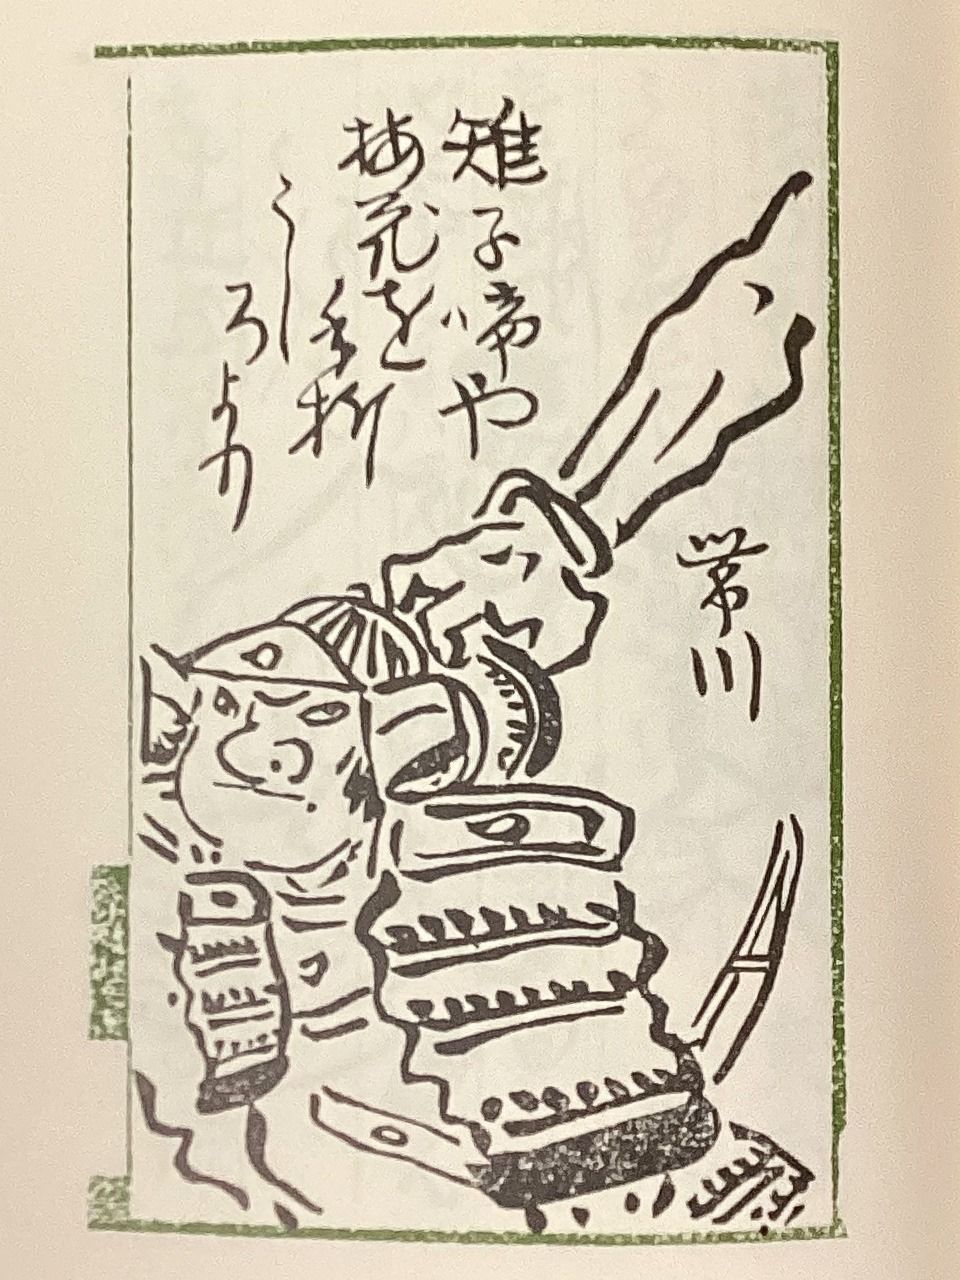 雉子啼や
梅花を
手折
うし
ろより
帯川